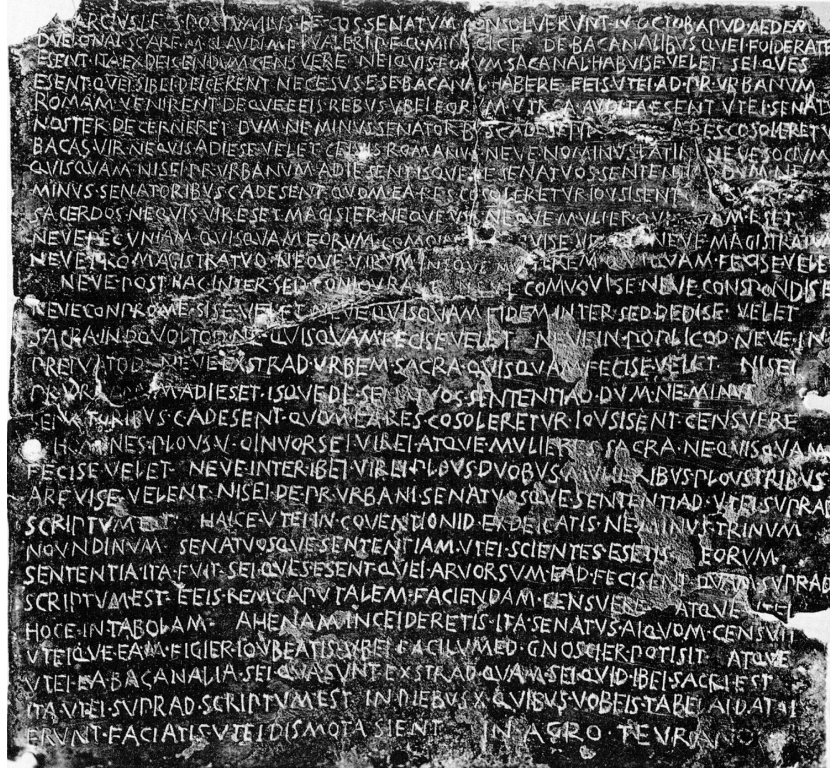 MARCIVS·L·F·S·POSTVMIVS·L·F·COS·SENATVM·CONSOLVERVNT·N·OCTOB·APVD·AEDEM
DVELONAI·SC·ARF·M·CLAVDI·M·F·L·VALERI·P·F·Q·MINVCI·C·F· DE·BACANALIBVS·QVEI·FOIDERATEI
ESENT·ITA·EXDEICENDVM·CENSVERE· NEIQVIS·EORVM·SACANAL·HABVISE·VELET· SEI·QVES
ESENT·QVEI·SIBEI·DEICERENT·NECESVS·ESE·BACANAL·HABERE·EEIS·VTEI·AD·PR·VRBANVM
ROMAM·VENIRENT·DEQVE·EEIS·REBVS·VBEI·EORVM·VTR A·AVDITA·ESENT·VTEI·SENATVS
NOSTER·DECERNERET·DVM·NE·MINVS·SENATORBVS·C·ADESENT A·RES·COSOLERETVR
BACAS·VIR·NEQVIS·ADIESE·VELET·CEIVIS·ROMANVS·NEVE·NOMINVS·LATINI·NEVE·SOCIVM
QVISQVAM·NISEI·PR·VRBANVM·ADIESENT·ISQVE·DE·SENATVOS·SENTENTIAD·DVM·NE
MINVS·SENATORIBVS·C·ADESENT·QVOM·EA·RES·COSOLERETVR·IOVSISENT
SACERDOS·NEQVIS·VIR·ESET·MAGISTER·NEQVE·VIR·NEQVE·MVLIER·QVISQVAM·ESET
NEVE·PECVNIAM·QVISQVAM·EORVM·COMOINE HABVISE·VELET NEVE·MAGISTRATVM
NEVE·PRO·MAGISTRATVD·NEQVE·VIRVM·NEQVE·MVLIEREM·QVIQVAM·FECISE·VELET
NEVE·POST·HAC·INTER·SED·CONIOVRASE NEVE COMVOVISE·NEVE·CONSPONDISE
NEVE·CONPROMESISE·VELET·NEVE·QVISQVAM·FIDEM·INTER·SED·DEDISE· VELET
SACRA·IN·DQVOLTOD·NE·QVISQVAM·FECISE·VELET· NEVE·IN·POPLICOD·NEVE·IN
PREIVATOD·NEVE·EXSTRAD·VRBEM·SACRA·QVISQVAM·FECISE·VELET· NISEI
PR·VRBANVM·ADIESET·ISQVE·DE·SENATVOS·SENTENTIAD·DVM·NE·MINVS
SENATORIBVS·C·ADESENT·QVOM·EA·RES·COSOLERETVR·IOVSISENT·CENSVERE
HOMINES·PLOVS·V·OINVORSEI·VIREI·ATQVE·MVLIERES SACRA·NE·QVISQVAM
FECISE·VELET· NEVE·INTER·IBEI·VIREI·PLOVS·DVOBVS·MVLIERIBVS·PLOVS·TRIBVS
ARFVISE·VELENT·NISEI·DE·PR·VRBANI·SENATVOSQVE·SENTENTIAD·VTEI·SVPRAD
SCRIPTVM·EST· HAICE·VTEI·IN·COVENTIONID·EXDEICATIS·NE·MINVS·TRINVM
NOVNDINVM· SENATVOSQVE·SENTENTIAM·VTEI·SCIENTES·ESETIS· EORVM
SENTENTIA·ITA·FVIT·SEI·QVES·ESENT·QVEI·ARVORSVM·EAD·FECISENT·QVAM·SVPRAD
SCRIPTVM·EST·EEIS·REM·CAPVTALEM·FACIENDAM·CENSVERE· ATQVE·VTEI
HOCE·IN·TABOLAM· AHENAM·INCEIDERETIS·ITA·SENATVS·AIQVOM·CENSVIT
VTEIQVE·EAM·FIGIER·IOVBEATIS·VBEI·FACILVMED·GNOSCIER·POTISIT· ATQVE
VTEI·EA·BACANALIA·SEI·QVA·SVNT·EXSTRAD·QVAM·SEI·QVID·IBEI·SACRI·EST
ITA·VTEI·SVPRAD·SCRIPTVM·EST· IN·DIEBVS·X·QVIBVS·VOBEIS·TABELAI·DATAI
ERVNT·FACIATIS·VTEI·DISMOTA·SIENT· IN·AGRO·TEVRANO